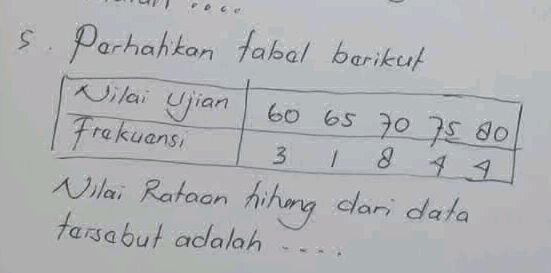 5. Perhatikan tabel berikut
Nilai Ujian 60 65 70 75 80
Frekuensi 3 1 8 4 4
Nilai Rataan hitung dari data
tersebut adalah ....